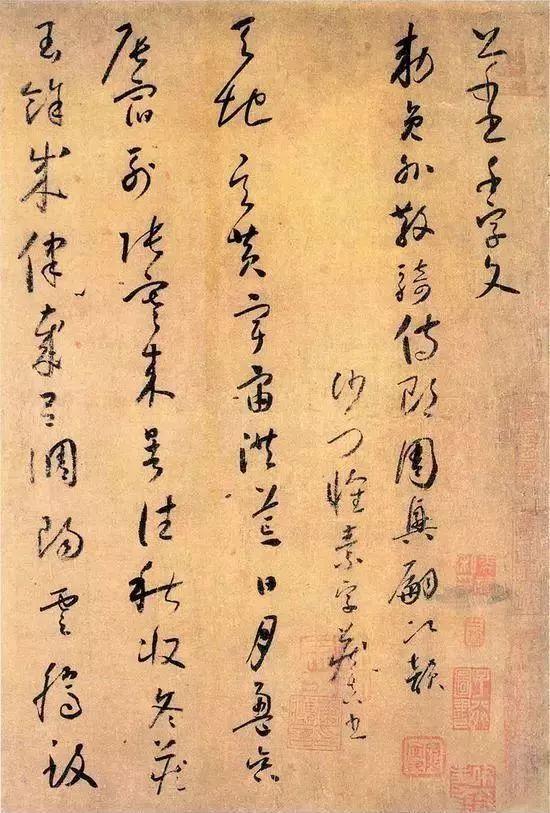 草書千字文
勅員外散騎侍郎周興嗣次韻
沙門懷素字藏真書
天地玄黃宇宙洪荒日月盈昃
辰宿列張寒來暑往秋收冬藏
閏餘成律歲呂調陽雲騰致